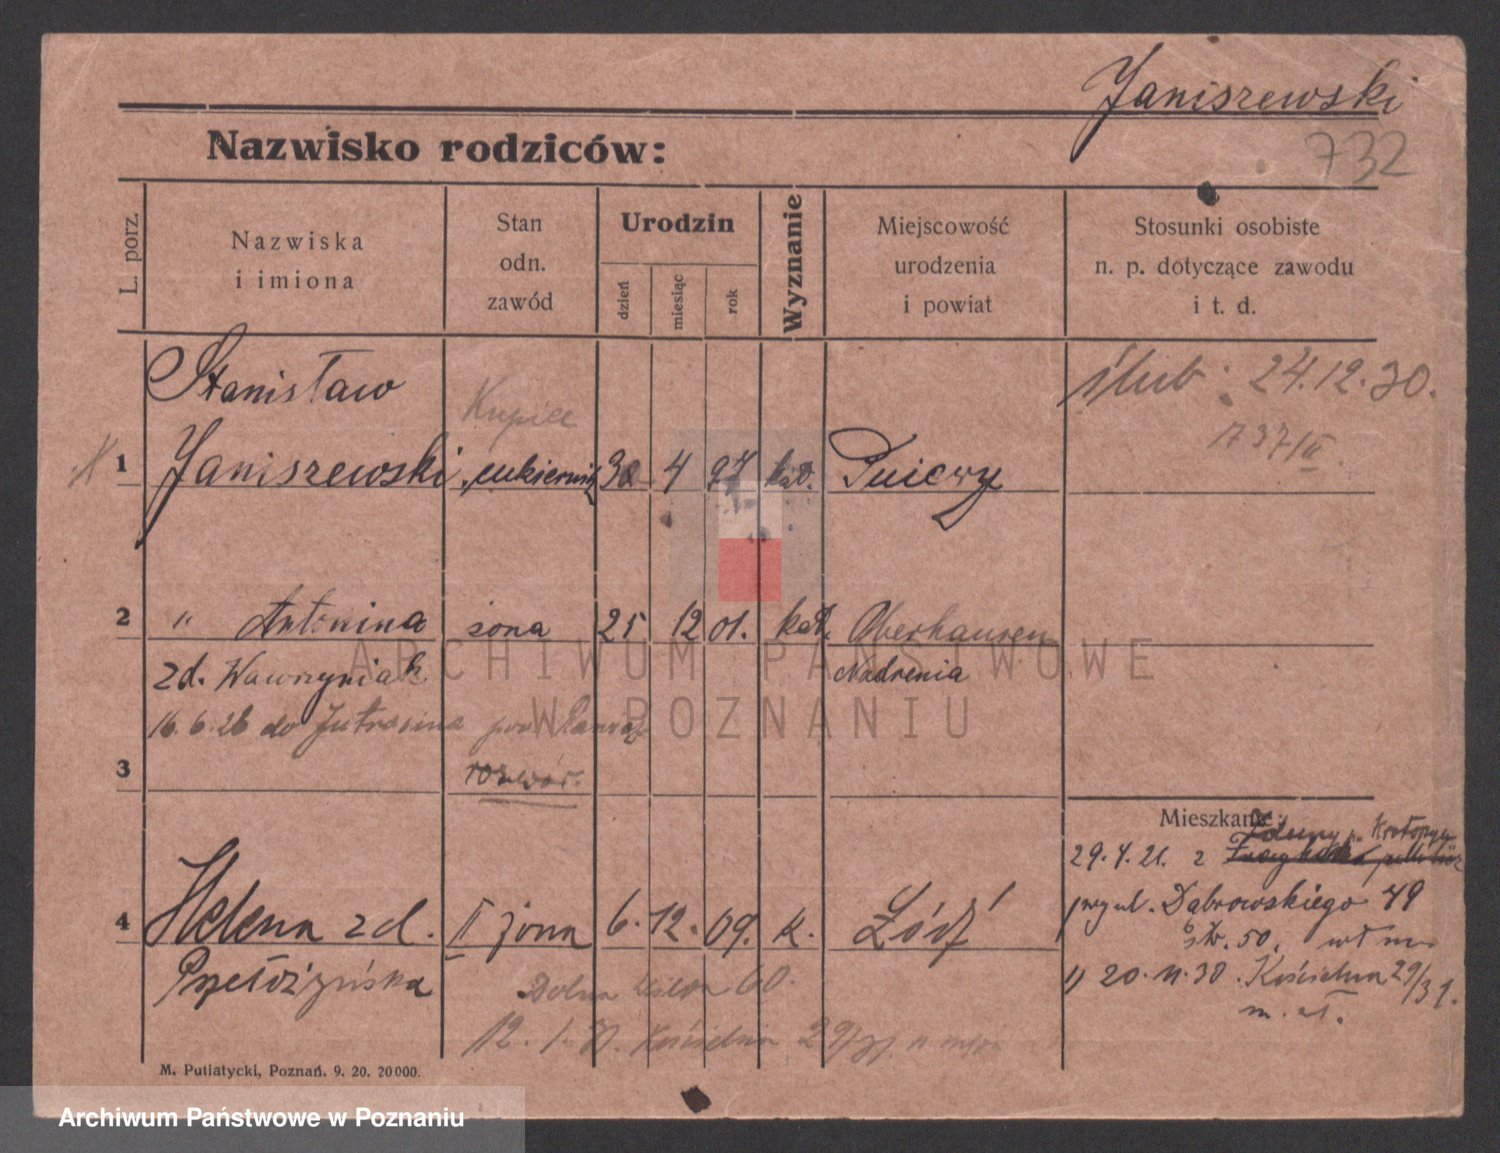 Janiszewski
732
Nazwisko rodziców:
L. porz.
Nazwiska
i imiona
Stan
odn.
zawód
Urodzin
dzień
miesiąc
rok
Wyznanie
Miejscowość
urodzenia
i powiat
Stosunki osobiste
n. p. dotyczące zawodu
i t. d.
Stanisław
Kupiec
ślub: 24.12.30.
737/II
1 Janiszewski cukiernik 30 4 97 kat. Pniewy
2 " Antonina żona 25 12 01. kat. Oberhausen
zd. Wawrzyniak Nadrenia
16.6.26 do Jutrosina
3 rozwór.
Mieszkanie:
Zduny Krotoszyn
29.4.21. z
przy ul. Dąbrowskiego 49
4 Helena zd. II żona 6. 12. 09. k. Łódź
50.
Przełożyńska
1) 20.11.30. Kościelna 29/31.
Dolna Wilda 60.
m.
12. 1. Kościelna 29
M. Putiatycki, Poznań. 9. 20. 20000.
ARCHIWUM PAŃSTWOWE
W POZNANIU
Archiwum Państwowe w Poznaniu